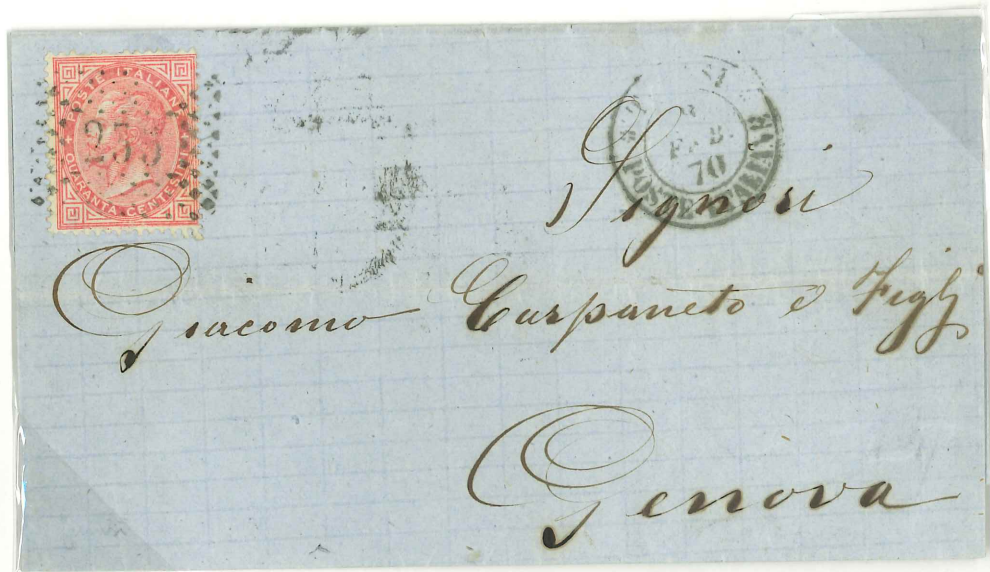 POSTE ITALIANE
QUARANTA CENTESIMI
FEB.
70
POSTE ITALIANE
Signori
Giacomo Carpaneto e Figlj
Genova